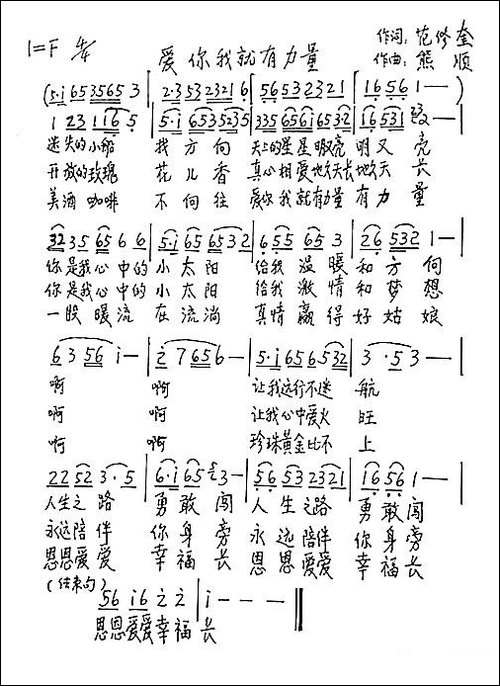 1=F 4/4 爱你我就有力量 作词:范修奎
作曲:熊顺
(5·i 653565 3 | 2·353 2321 6 | 5653 2321 | 1656 1—)
1 23 116 5 | 5·i 653523 5 | 335 656i 6532 | 16531 2—
迷失的小船 找方向 天上的星星眼儿亮 明又亮
开放的玫瑰 花儿香 真心相爱地久天长地久天长
美酒咖啡 不向往 爱你我就有力量有力量
32 35 65 6 6 | 5·i 65 6532 | 6 55 65 3 | 26 532 1—
你是我心中的小太阳 给我温暖和方向
你是我心中的小太阳 给我激情和梦想
一股暖流在流淌 真情赢得好姑娘
6 3 56 i— | 2 7 656— | 5·i 656532 | 3·53—
啊 啊 让我远行不迷航
啊 啊 让我心中爱火旺
啊 啊 珍珠黄金比不上
22 52 3·5 | 6·i 65 3— | 5653 2321 | 1656 1—
人生之路 勇敢闯 人生之路 勇敢闯
永远陪伴 你身旁 永远陪伴 你身旁
恩恩爱爱 幸福长 恩恩爱爱 幸福长
(结束句)
56 i6 2 2 | i — — —
恩恩爱爱幸福长